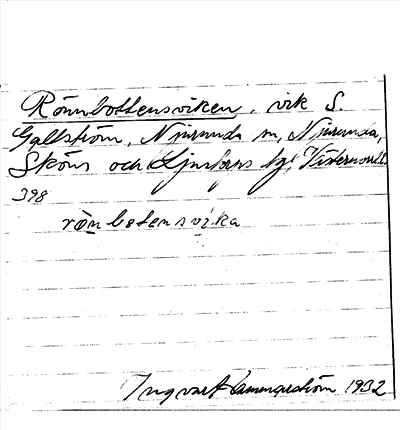 Rönnbottensviken, vik S.
Galtström, Njurunda sn, Njurunda,
Sköns och Ljustorps tg, Västernorrl.
398
rönbotensvika
Ingvar Hammarström 1932